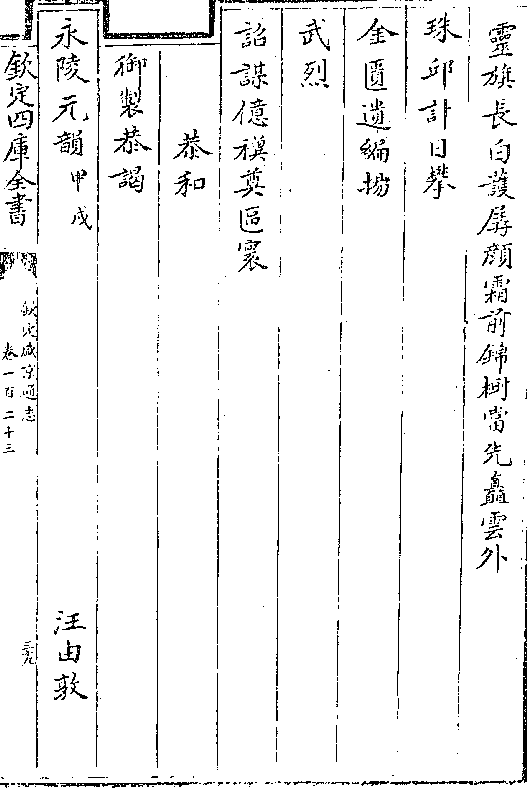 靈旗長白護孱顔霜前錦樹當先矗雲外
珠邱計日攀
金匱遺編揚
武烈
詒謀億禩奠區寰
恭和
御製恭謁
永陵元韻甲戌
汪由敦
欽定四庫全書
欽定盛京通志
卷一百二十三